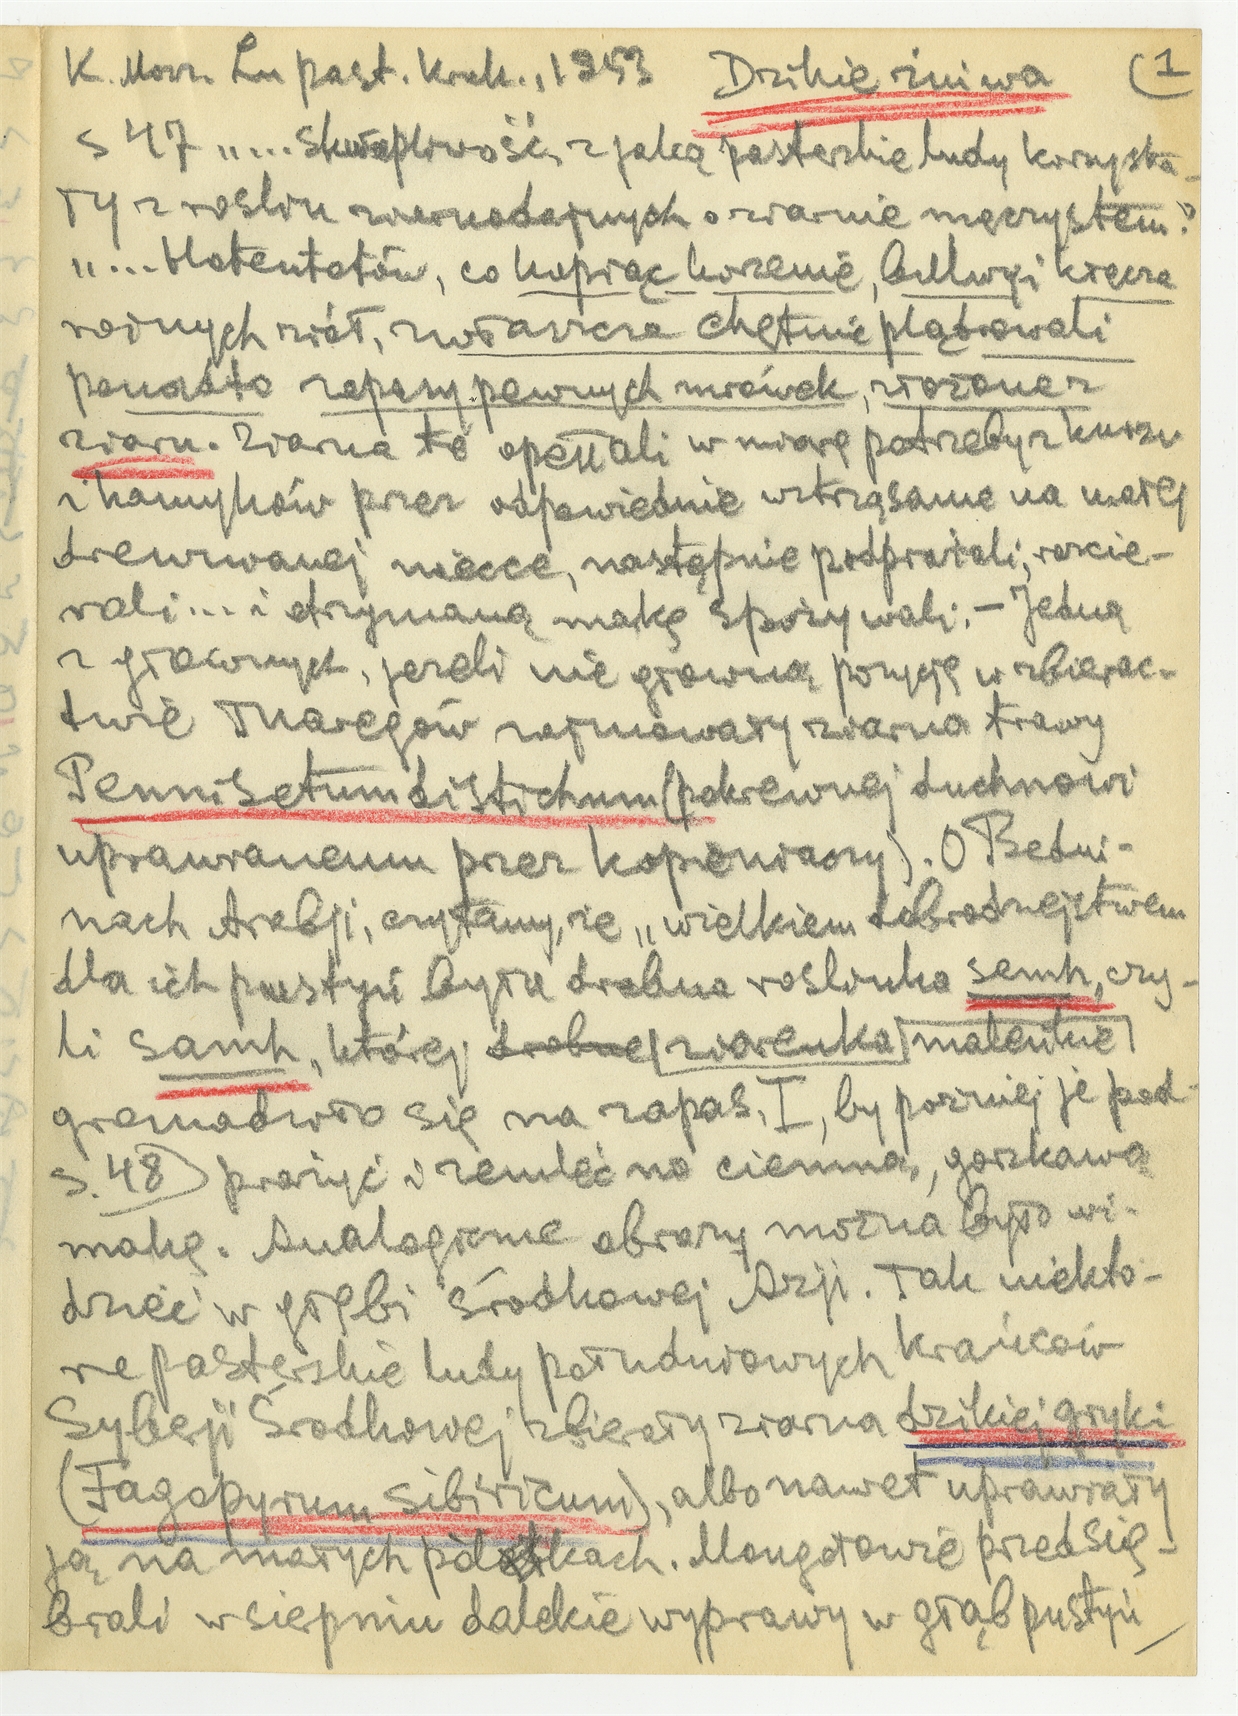 K. Mosz. Lu past. Krak., 1953 Dzikie żniwa (1
s 47 „... skwapliwość, z jaką pasterskie ludy korzysta-
ły z roślin ziarnodajnych o ziarnie mączystem."
„... Hotentotów, co kopiąc korzenie, bulwy i kłącza
rożnych ziół, zwłaszcza chętnie plądrowali
ponadto zapasy pewnych mrówek, złożone z
ziarn. Ziarna te opełłali w miarę potrzeby z kurzu
i kamyków przez odpowiednie wstrząsanie na małej
drewnianej niecce, następnie podprażali, rozcie-
rali... i otrzymaną mąkę spożywali. – Jedną
z głownych, jeżeli nie głowną pozycję w zbierac-
twie Tuaregów zajmowały ziarna trawy
Pennisetum distichum (pokrewnej duchnowi
uprawianemu przez kopieniaczy). O Bedui-
nach Arabji, czytamy, że „wielkiem dobrodziejstwem
dla ich pustyń była drobna roślinka semh, czy-
li samh, której drobne ziarenka maleńkie
gromadziło się na zapas, I, by poźniej je pod-
s. 48) prażyć i zemleć na ciemną, gorzkawą
mąkę. Analogiczne obrazy można było wi-
dzieć w głębi Środkowej Azji. Tak niekto-
re pasterskie ludy południowych krańców
Syberji Środkowej zbierały ziarna dzikiej gryki
(Fagopyrum sibiricum), albo nawet uprawiały
ją na małych poletkach. Mongołowie przedsię-
brali w sierpniu dalekie wyprawy w głąb pustyń